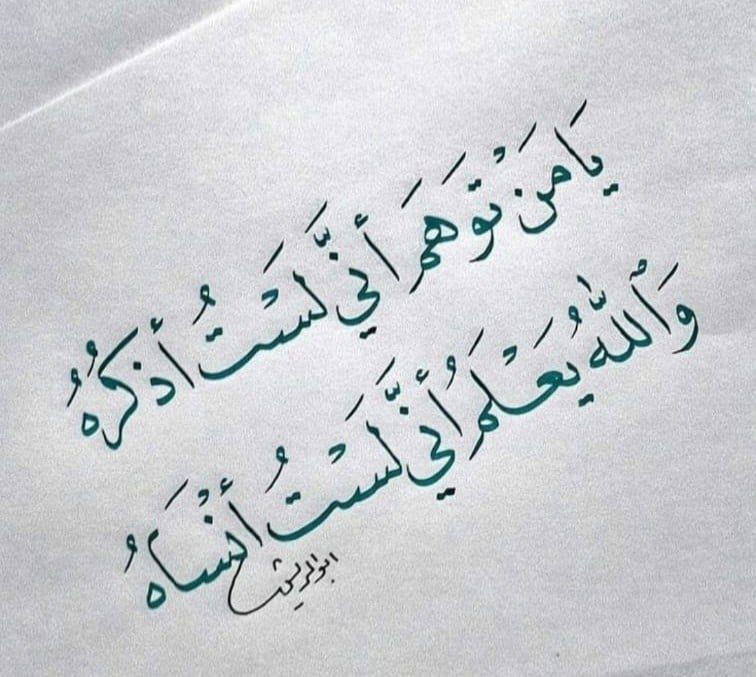 يَا مَنْ تَوَهَمَ أَنّي لَسْتُ أذكُرُهُ
وَٱللّٰهُ يَعْلَمُ أَنّي لَسْتُ أَنْسَاهُ